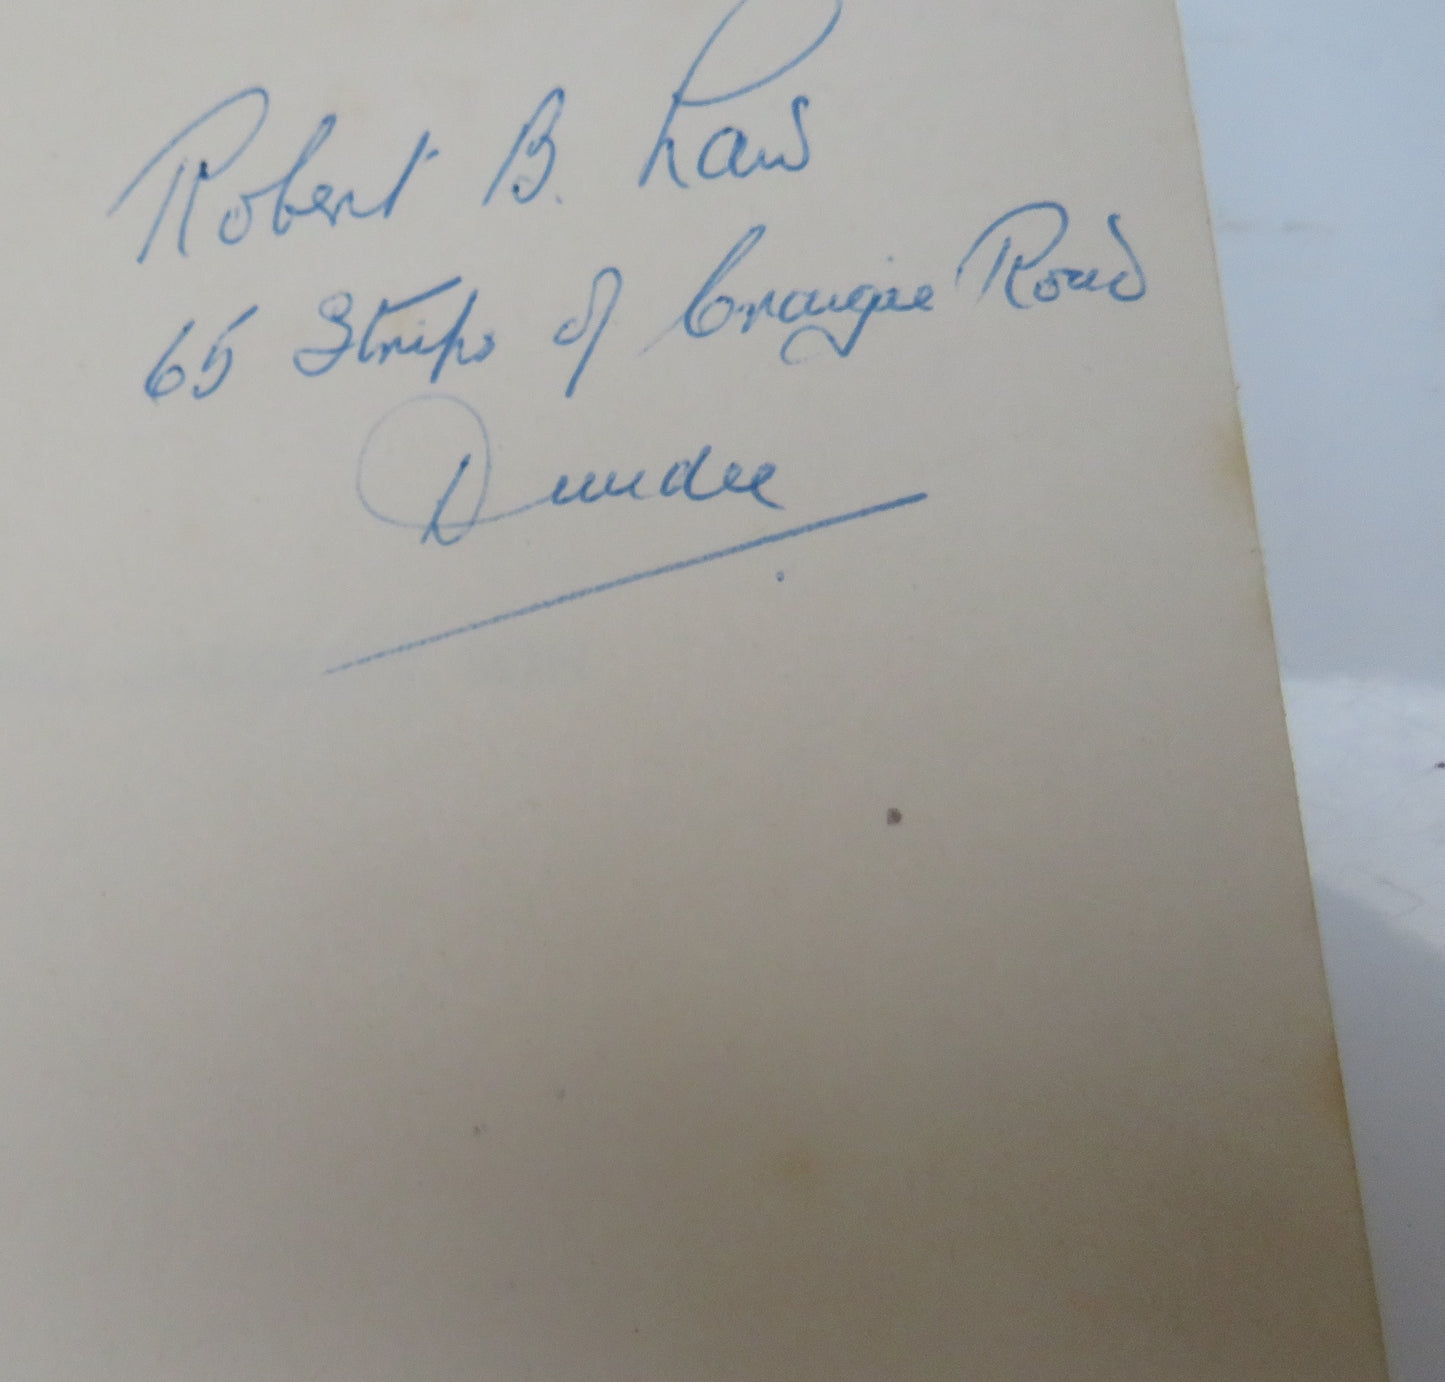 Robert B.
65 Strips of Craigie Road
Dundee